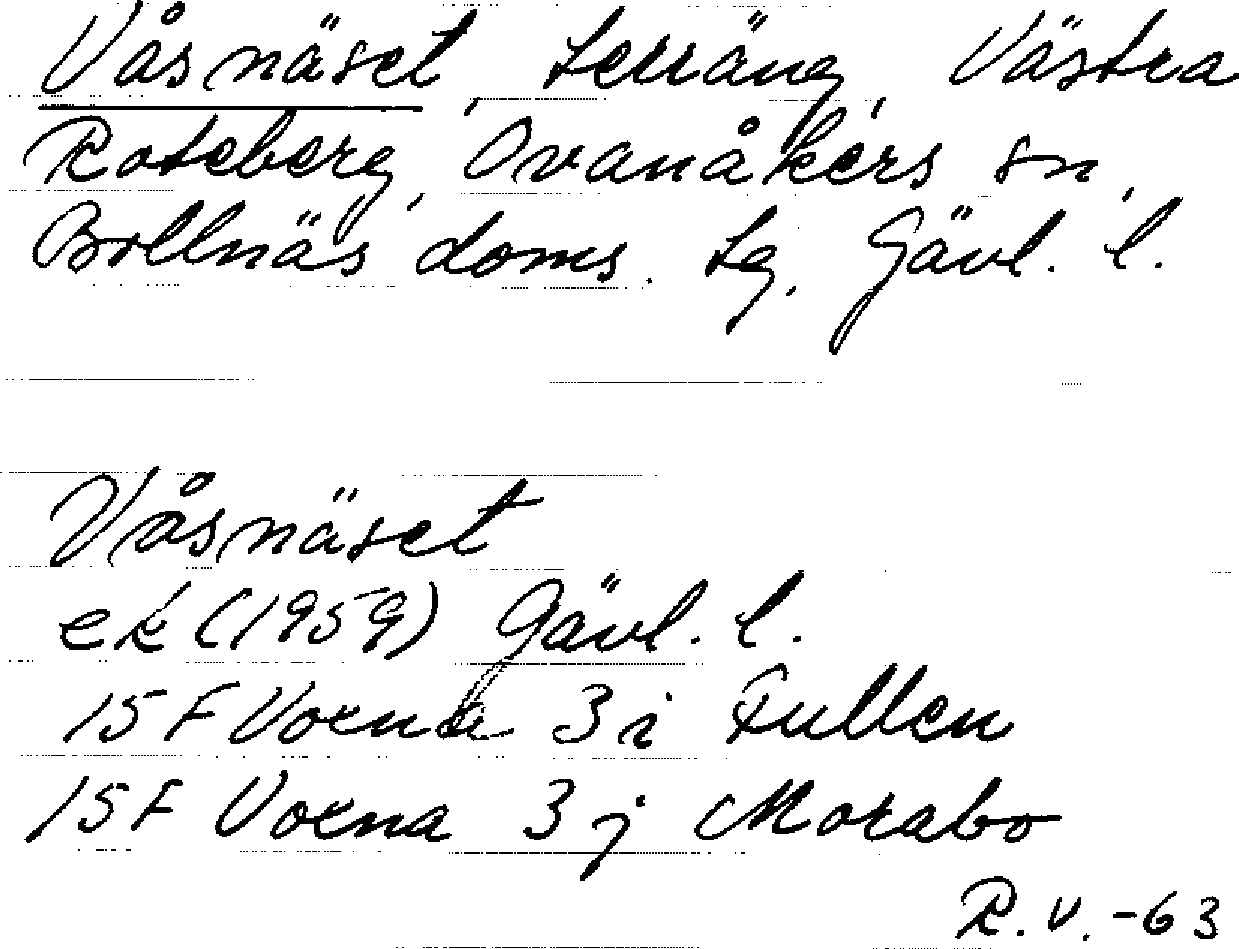 Våsnäset, terräng, Västra
Roteberg, Ovanåkers sn,
Bollnäs doms. tg, Gävl. l.
Våsnäset
ek (1959) Gävl. l.
15 F Voxna 3 i Fullen
15 F Voxna 3 j Morabo
R.V. -63